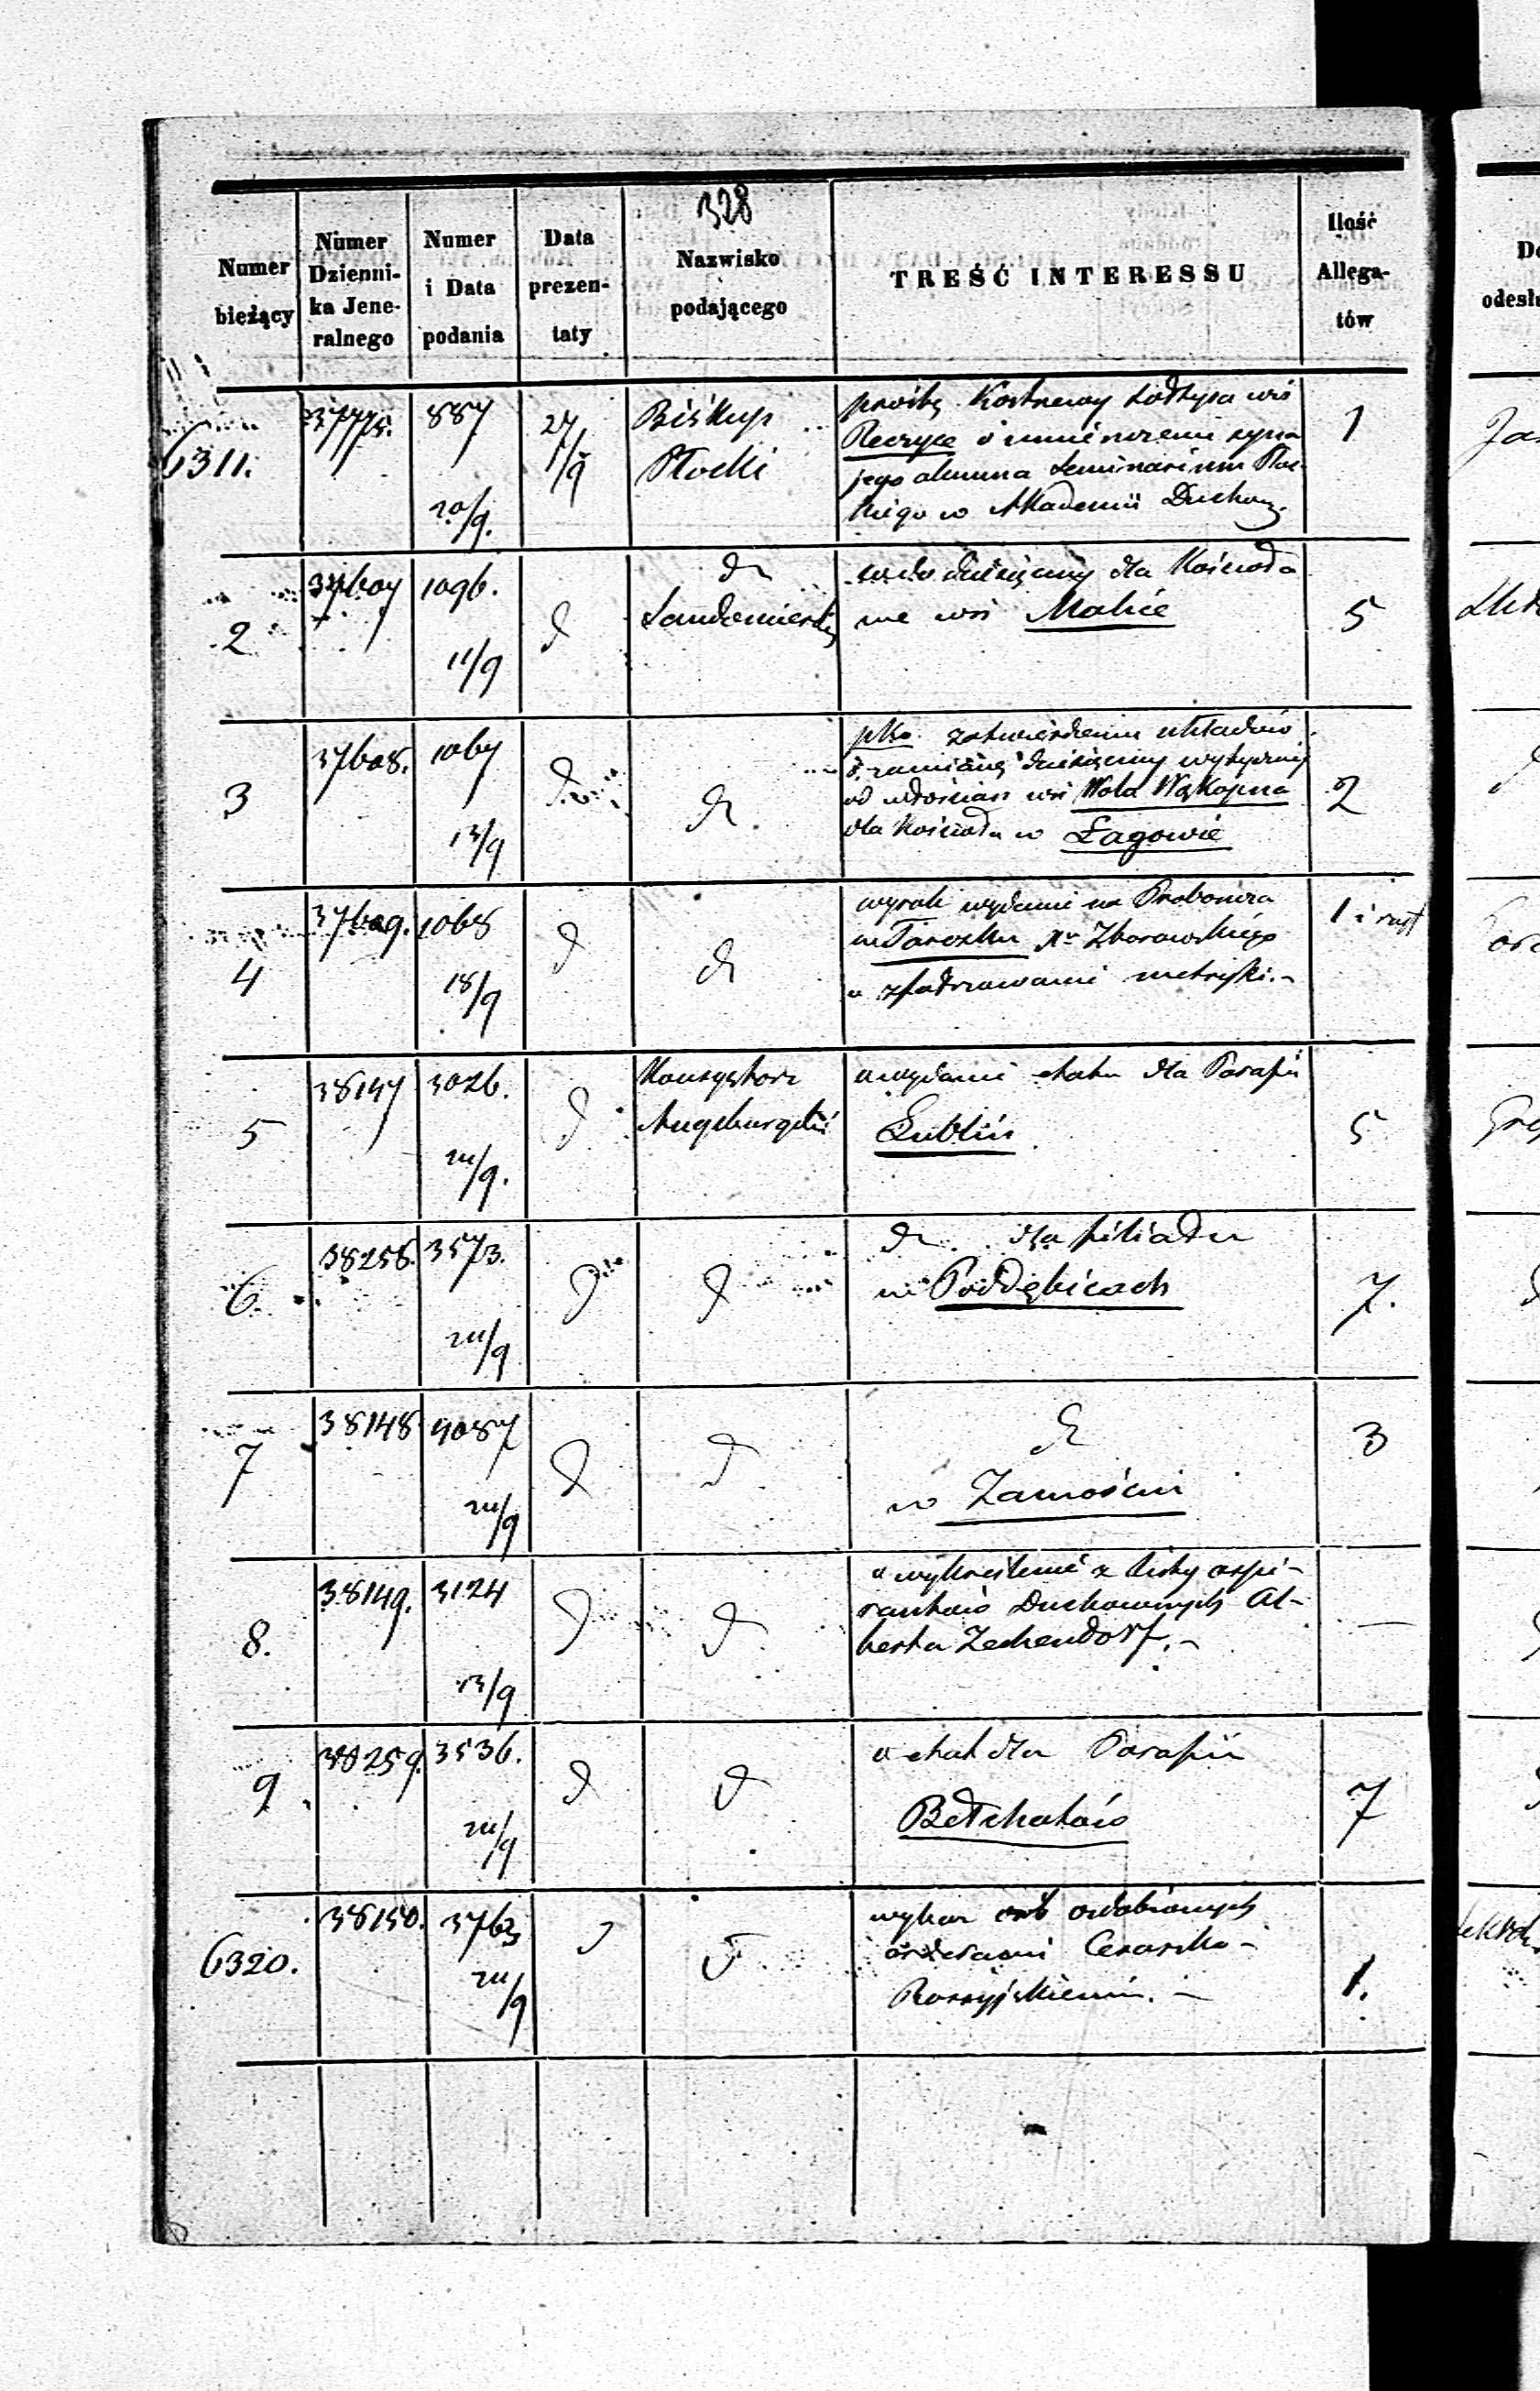 328
Numer bieżący
Numer Dzienni-ka Jene-ralnego
Numer i Data podania
Data prezen-taty
Nazwisko podającego
TREŚĆ INTERESSU
Ilość Allega-tów
6311. 37775. 887 20/9. 27/9 Biskup Płocki
prośbę Kostrewy sołtysa wsi
Reczyce o umieszczenie syna
jego alumna Seminarium Płoc-
kiego w Akademii Duchow.
1
2 37607 1096. 11/9 d dr Sandomierski
dziesięciny dla Kościoła
we wsi Malice
5
3 37608. 1067 13/9 d dr.
zatwierdzenia układów
o zamianę dziesięciny wytycznej
od włościan wsi Wola Wąkopna
dla Kościoła w Łagowie
2
4 37609. 1068 18/9 d dr
wydanie na Probostwo
w Tarczku Xa Zborowskiego
metryki.-
1 i
5 38147 3026. d Konsystorz Augsburgski
o wydanie etatu dla Parafii
Lublin
5
6 38258. 3573. d d
dr. dla filiału
w Poddębicach
7.
7 38148 4087 d d
dr
w Zamościu
3
8. 38149. 3124 13/9 d d
o wykreślenie z listy aspi-
rantów Duchownych Al-
berta Zechendorf.-
—
9. 38259. 3536. d d
o etat dla Parafii
Bełchatów
7
6320. 38150. 3763 d d
wykaz osób ozdobionych
orderami Cesarsko-
Rossyjskiemi.-
1.